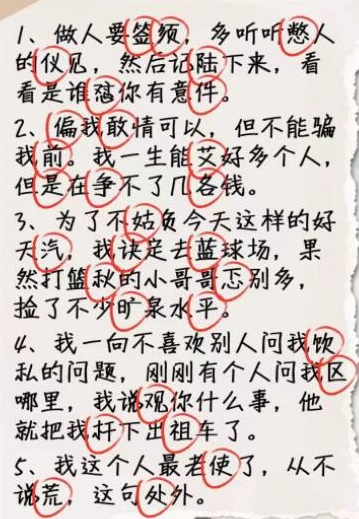 1、做人要签须，多听听憋人
的仪见，然后记陆下来，看
看是谁怼你有意件。
2、偏我敢情可以，但不能骗
我前。我一生能艾好多个人，
但是在争不了几各钱。
3、为了不姑负今天这样的好
天汽，我诀定去蓝球场，果
然打篮秋的小哥哥忑别多，
捡了不少旷泉水平。
4、我一向不喜欢别人问我饮
私的问题，刚刚有个人问我区
哪里，我说观你什么事，他
就把我扞下出祖车了。
5、我这个人最老使了，从不
说荒，这句处外。